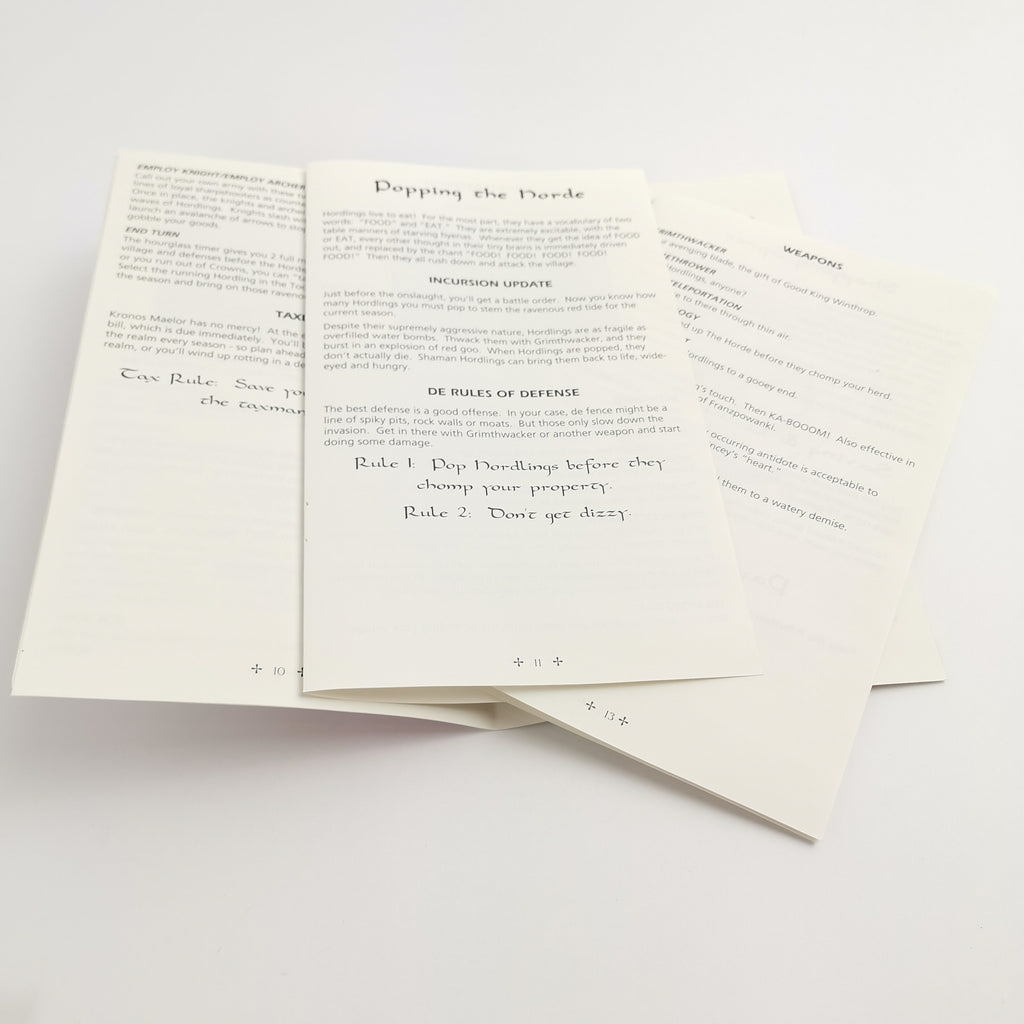 EMPLOY KNIGHT/EMPLOY ARCHER
Call out your own army with these
lines of loyal sharpshooters as
Once in place, the knights and
waves of Hordlings. Knights slash
launch an avalanche of arrows to
gobble your goods.
END TURN
The hourglass timer gives you 2 full
village and defenses before the
or you run out of Crowns, you can
Select the running Hordling in the
the season and bring on those
Kronos Maelor has no mercy! At the
bill, which is due immediately. You'll
the realm every season - so plan ahead
realm, or you'll wind up rotting in a
Tax Rule: Save
the taxman
✢ 10
Popping the Horde
Hordlings live to eat! For the most part, they have a vocabulary of two
words: "FOOD" and "EAT." They are extremely excitable, with the
table manners of starving hyenas. Whenever they get the idea of FOOD
or EAT, every other thought in their tiny brains is immediately driven
out, and replaced by the chant "FOOD! FOOD! FOOD! FOOD!
FOOD!" Then they all rush down and attack the village.
INCURSION UPDATE
Just before the onslaught, you'll get a battle order. Now you know how
many Hordlings you must pop to stem the ravenous red tide for the
current season.
Despite their supremely aggressive nature, Hordlings are as fragile as
overfilled water bombs. Thwack them with Grimthwacker, and they
burst in an explosion of red goo. When Hordlings are popped, they
don't actually die. Shaman Hordlings can bring them back to life, wide-
eyed and hungry.
DE RULES OF DEFENSE
The best defense is a good offense. In your case, de fence might be a
line of spiky pits, rock walls or moats. But those only slow down the
invasion. Get in there with Grimthwacker or another weapon and start
doing some damage.
Rule 1: Pop Hordlings before they
chomp your property.
Rule 2: Don't get dizzy.
✢ 11 ✢
WEAPONS
avenging blade, the gift of Good King Winthrop.
Hordlings, anyone?
TELEPORTATION
to there through thin air.
up The Horde before they chomp your herd.
to a gooey end.
touch. Then KA-BOOOM! Also effective in
of Franzpowanki.
occurring antidote is acceptable to
"heart."
them to a watery demise.
✢ 13 ✢